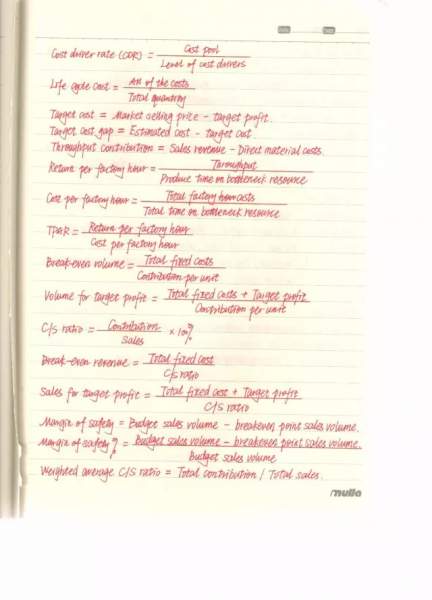 Cost driver rate (CDR) = Cost pool / Level of cost drivers
Life cycle cost = All of the costs / Total quantity
Target cost = Market selling price - target profit.
Target cost gap = Estimated cost - target cost.
Throughput contribution = Sales revenue - Direct material costs.
Return per factory hour = Throughput / Produce time on bottleneck resource
Cost per factory hour = Total factory hour costs / Total time on bottleneck resource
TPAR = Return per factory hour / Cost per factory hour
Break-even volume = Total fixed costs / Contribution per unit
Volume for target profit = Total fixed costs + Target profit / Contribution per unit
C/S ratio = Contribution / Sales × 100%
Break-even revenue = Total fixed cost / C/S ratio
Sales for target profit = Total fixed cost + Target profit / C/S ratio
Margin of safety = Budget sales volume - breakeven point sales volume.
Margin of safety % = Budget sales volume - breakeven point sales volume. / Budget sales volume
Weighted average C/S ratio = Total contribution / Total sales.